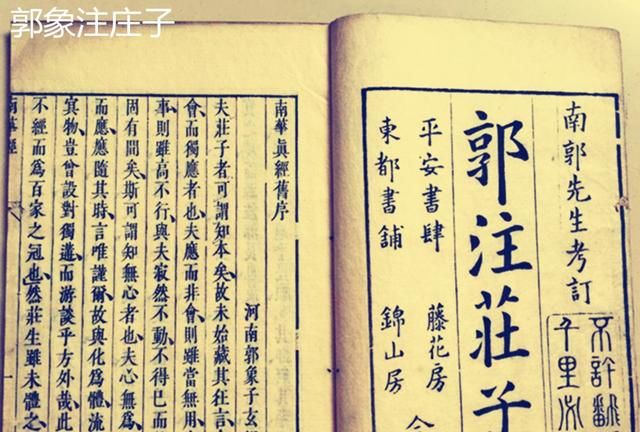 郭象注庄子
南郭先生考訂
不許翻
千里必
郭注莊子
平安書肆 藤花房
東都書舖 錦山房
南華眞經舊序
河南郭象子玄
夫莊子者可謂知本矣故未始藏其狂言
會而獨應者也夫應而非會則雖當無用
事則雖高不行與夫寂然不動不得已而
固有間矣斯可謂知無心者也夫心無爲
而應應隨其時言唯謹爾故與化爲體流
冥物豈曾設對獨遘而游談乎方外哉此
不經而爲百家之冠也然莊生雖未體之
南華經